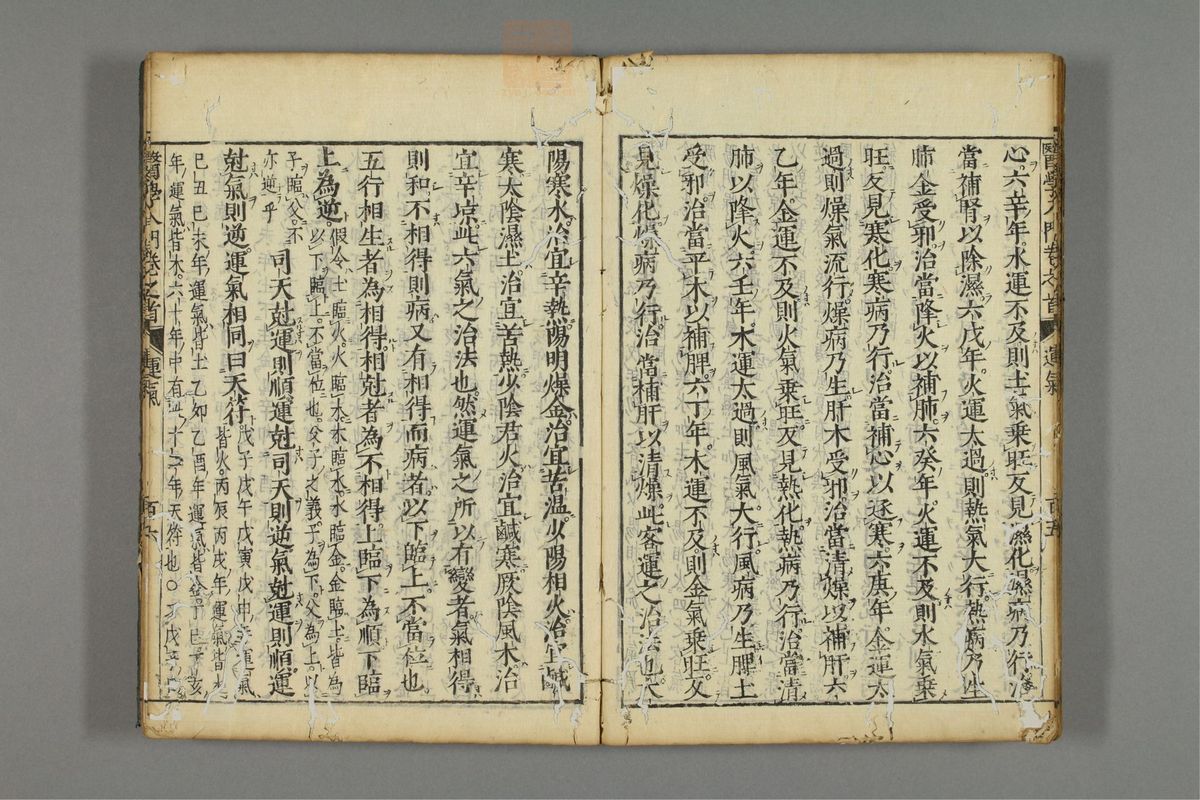 醫學入門卷之首 運氣 百五
心六辛年水運不及則土氣乗旺反見濕化濕病乃行治
當補腎以除濕六戊年火運太過則熱氣大行熱病乃生
肺金受邪治當降火以補肺六癸年火運不及則水氣乗
旺反見寒化寒病乃行治當補心以逐寒六庚年金運太
過則燥氣流行燥病乃生肝木受邪治當清燥以補肝六
乙年金運不及則火氣乗旺反見熱化熱病乃行治當清
肺以降火六壬年木運太過則風氣大行風病乃生脾土
受邪治當平木以補脾六丁年木運不及則金氣乗旺反
見燥化燥病乃行治當補肝以清燥此客運之治法也太
陽寒水治宜辛熱陽明燥金治宜苦温少陽相火治宜鹹
寒太陰濕土治宜苦熱少陰君火治宜鹹寒厥陰風木治
宜辛凉此六氣之治法也然運氣之所以有變者氣相得
則和不相得則病又有相得而病者以下臨上不當位也
五行相生者為相得相尅者為不相得上臨下為順下臨
上為逆假令土臨火火臨木木臨水水臨金金臨土皆為
以下臨上不當位也父子之義子為下父為上以
子臨父不
亦逆乎
司天尅運則順運尅司天則逆氣尅運則順運
尅氣則逆運氣相同曰天符戊子戊午戊寅戊申年運氣
皆火丙辰丙戌年運氣皆水
己丑己未年運氣皆土乙卯乙酉年運氣皆金丁巳丁亥
年運氣皆木六十年中有此十二年天符也〇
醫學入門卷之首 運氣 百六